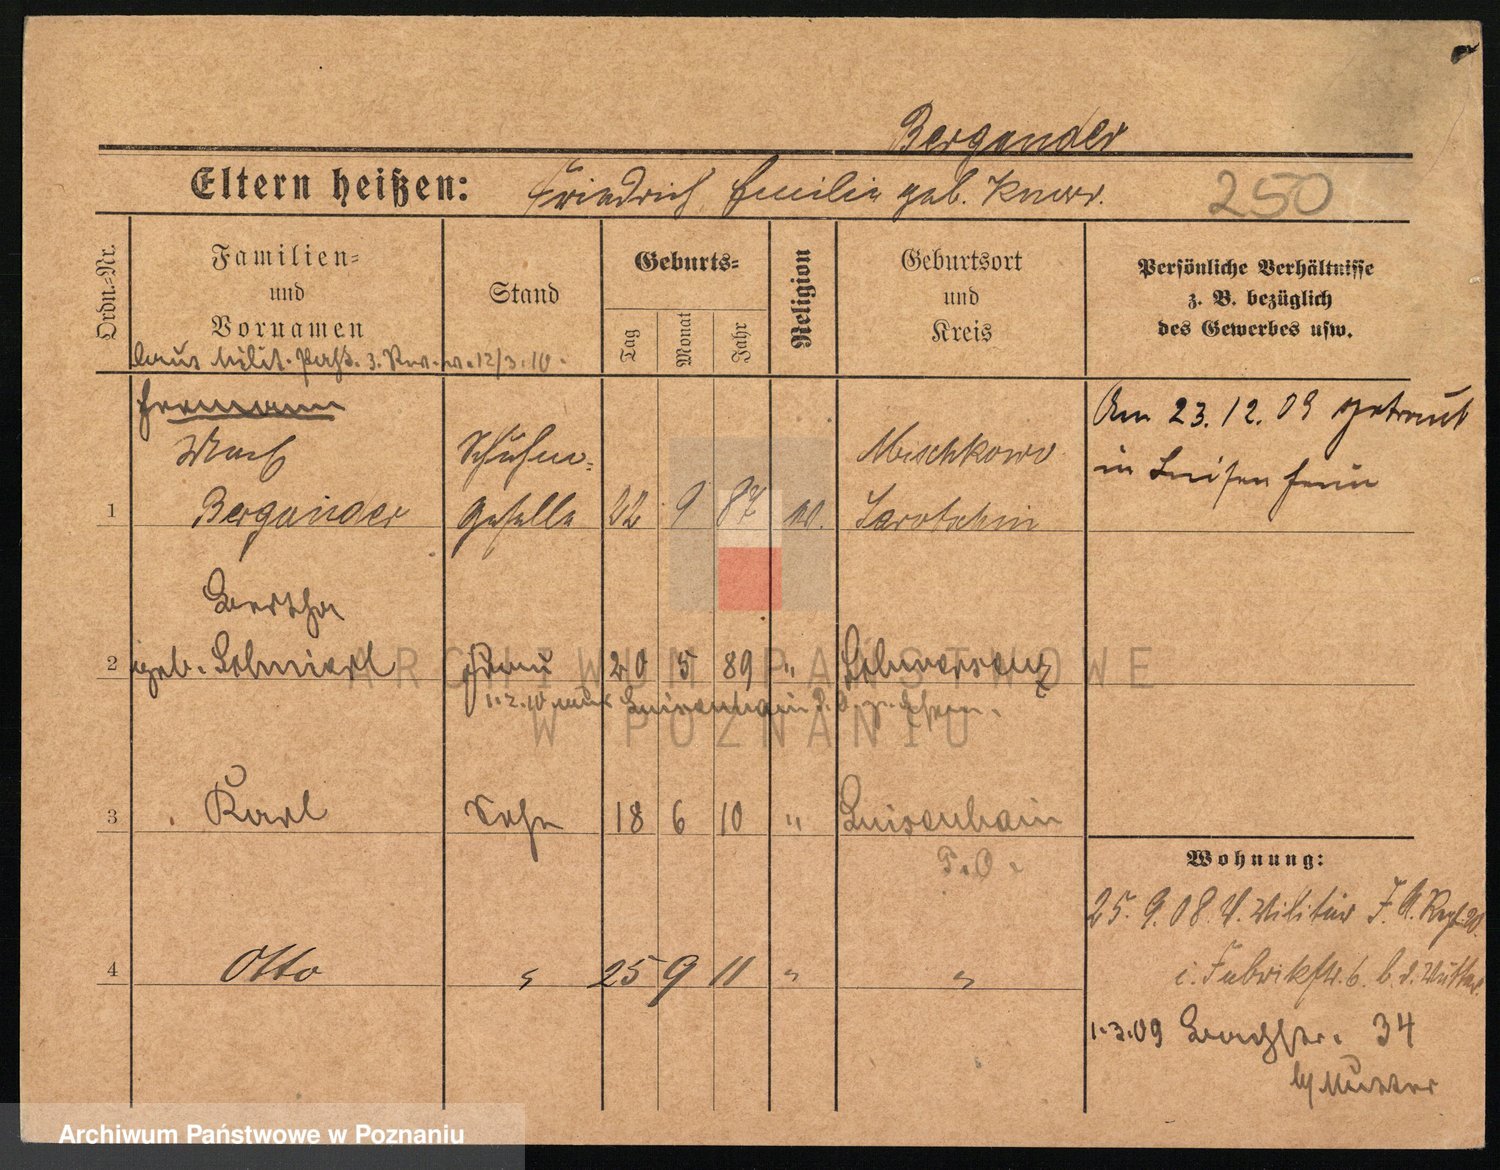 Bergander
Eltern heißen: Friedrich, Emilie geb. Knorr.
250
Ordn.-Nr.
Familien-
und
Vornamen
Stand
Geburts-
Tag
Monat
Jahr
Religion
Geburtsort
und
Kreis
Persönliche Verhältnisse
z. B. bezüglich
des Gewerbes usw.
laut Milit. Paß. 12/3.10.
Hermann
Bergander
Geselle
1
22
9
87
Mischkowo
Jarotschin
Am 23.12.09 getraut
in Luisenhain
Bertha
2
geb.
Frau
20
5
89
"
Schwersenz
1.2.10 Luisenhain P.O.
3
Karl
Sohn
18
6
10
"
Luisenhain
P.O.
Wohnung:
25.9.08. Militär F.A. Regt. 20.
i. Fabrikstr. 6. b. d. Mutter.
4
Otto
"
25
9
11
"
"
1.3.09 Bachstr. 34
b/ Mutter
ARCHIWUM PAŃSTWOWE
W POZNANIU
Archiwum Państwowe w Poznaniu